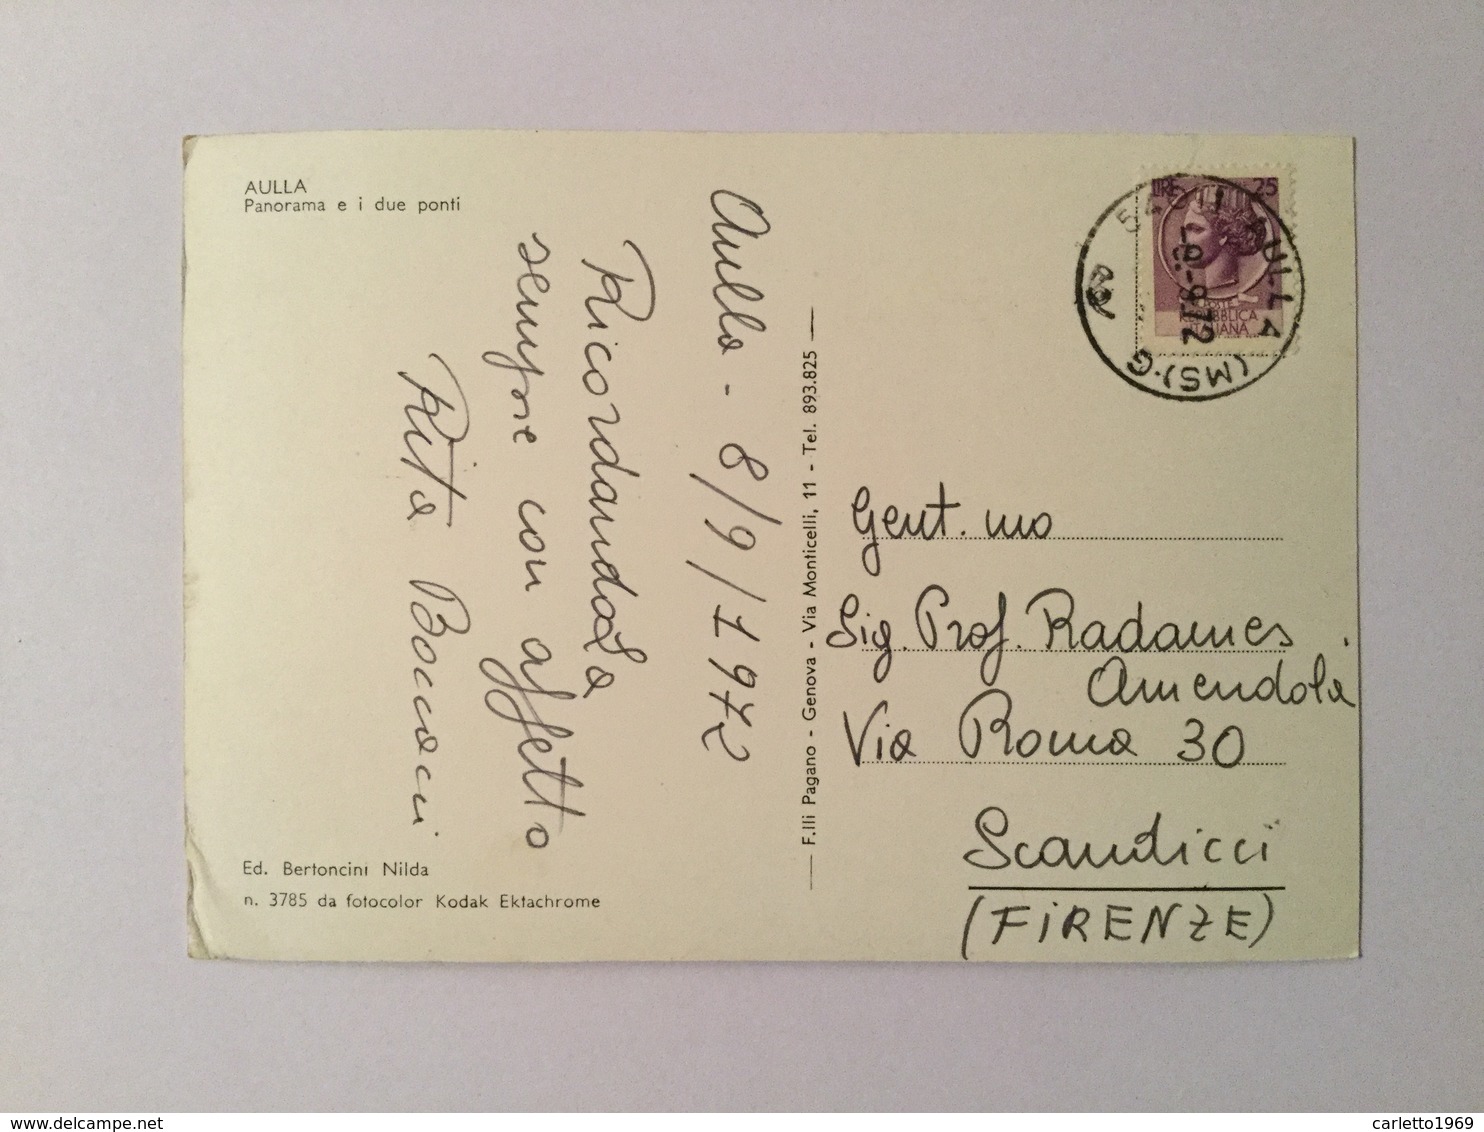 AULLA
Panorama e i due ponti
Aulla - 8/9/1972
RicordandoLa
sempre con affetto
Rita Boccacci
Ed. Bertoncini Nilda
n. 3785 da fotocolor Kodak Ektachrome
F.lli Pagano - Genova - Via Monticelli, 11 - Tel. 893.825
LIRE 25
POSTE
REPUBBLICA
ITALIANA
54011 AULLA (MS)·G
Gent.mo
Sig. Prof. Radames
Amendola
Via Roma 30
Scandicci
(FIRENZE)
carletto1969